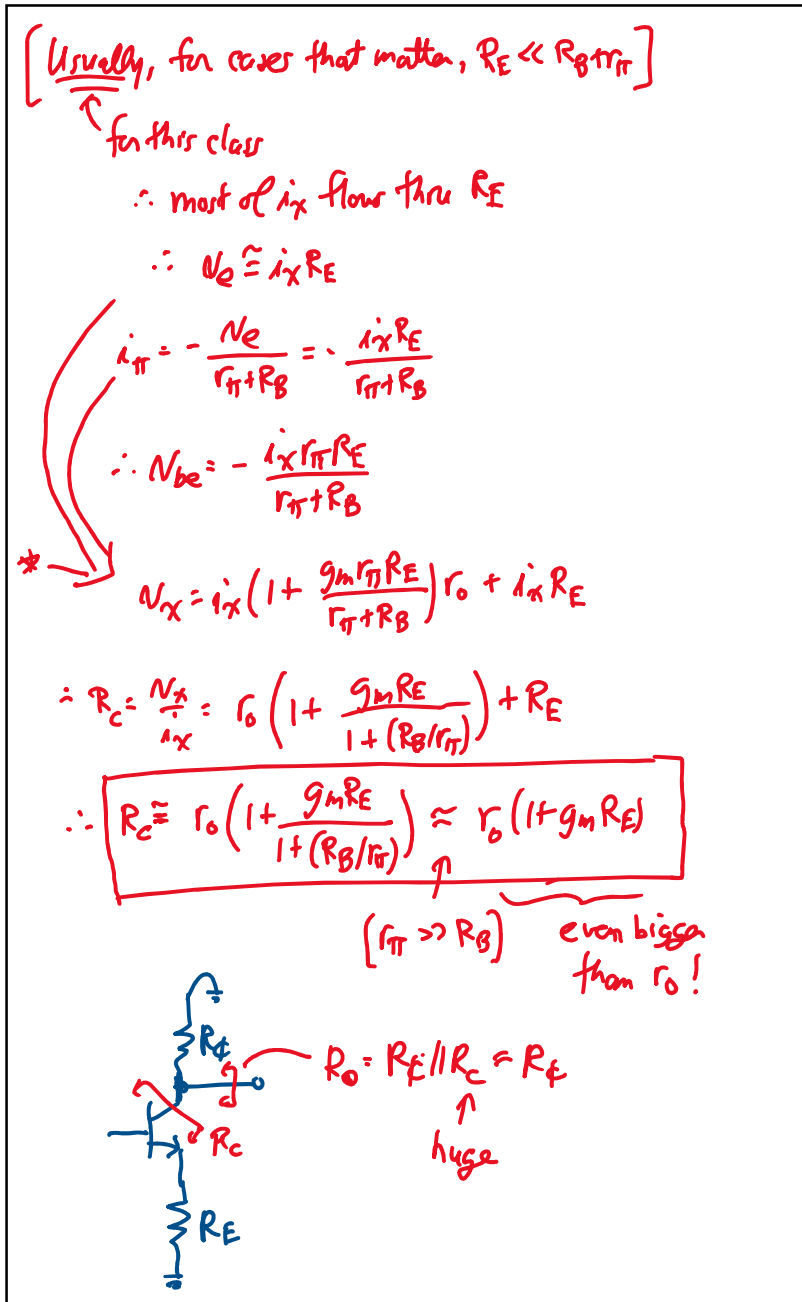 [Usually, for cases that matter, R_E << R_B+r_π]
for this class
∴ most of i_x flows thru R_E
∴ v_e ≅ i_x R_E
i_π = - v_e/(r_π+R_B) = - i_x R_E/(r_π+R_B)
∴ v_be = - i_x r_π R_E/(r_π+R_B)
*
v_x = i_x (1 + g_m r_π R_E/(r_π+R_B)) r_o + i_x R_E
∴ R_c = v_x/i_x = r_o (1 + g_m R_E/(1+(R_B/r_π))) + R_E
∴ R_c ≅ r_o (1 + g_m R_E/(1+(R_B/r_π))) ≈ r_o (1+g_m R_E)
[r_π >> R_B]
even bigger
than r_o!
R_₵
R_o = R_₵ // R_c ≈ R_₵
R_c
huge
R_E